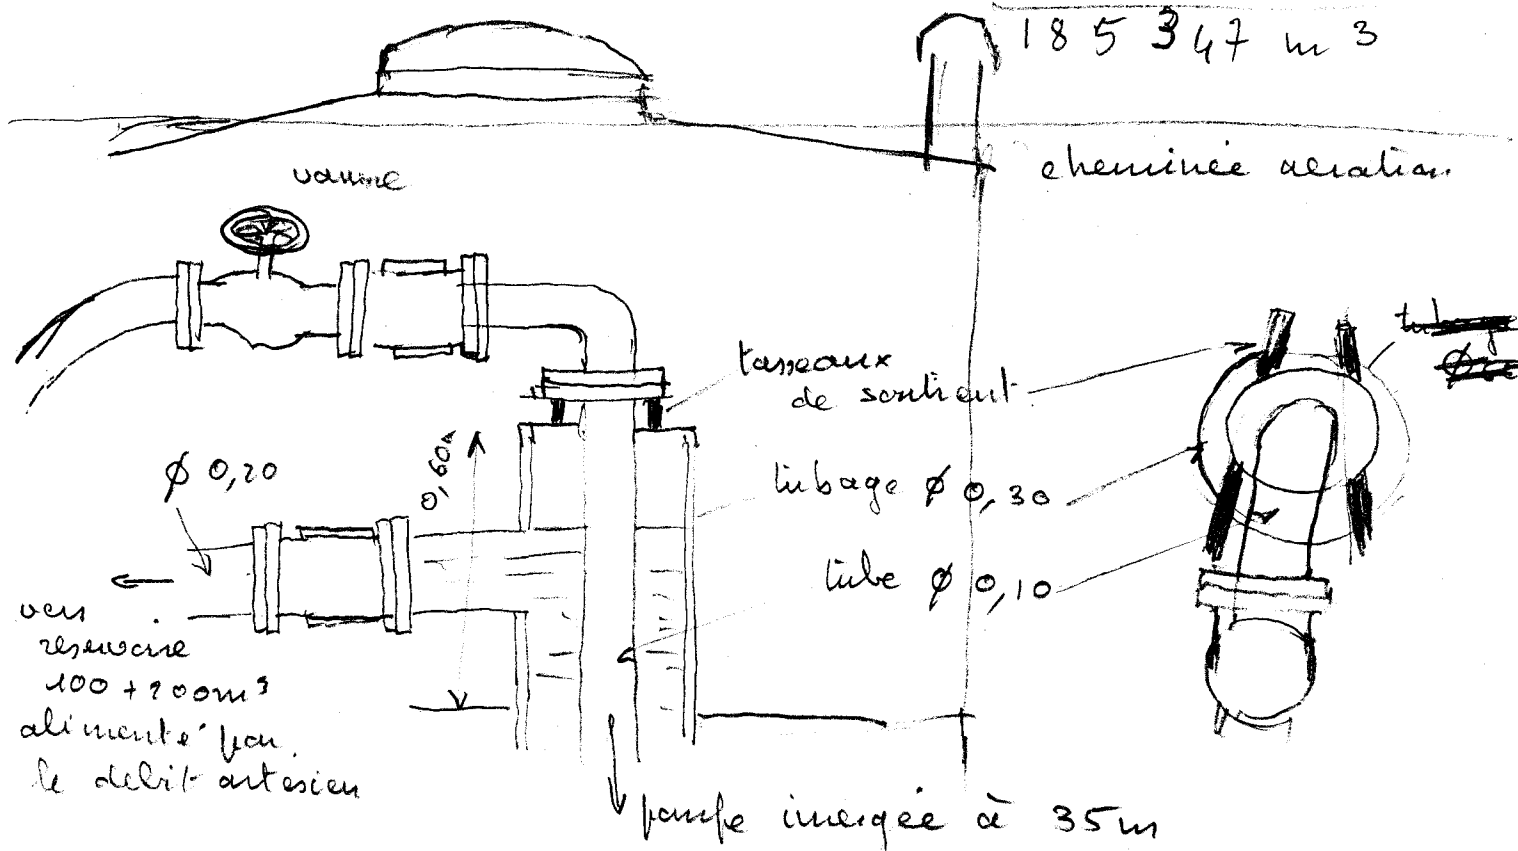 185 347 m3
cheminée aeration
vanne
tasseaux
de soutient
Ø 0,20
0,60
tubage Ø 0,30
tube Ø 0,10
vers
reservoire
100 + 200m3
alimenté par
le debit artesien
pompe imergée à 35m